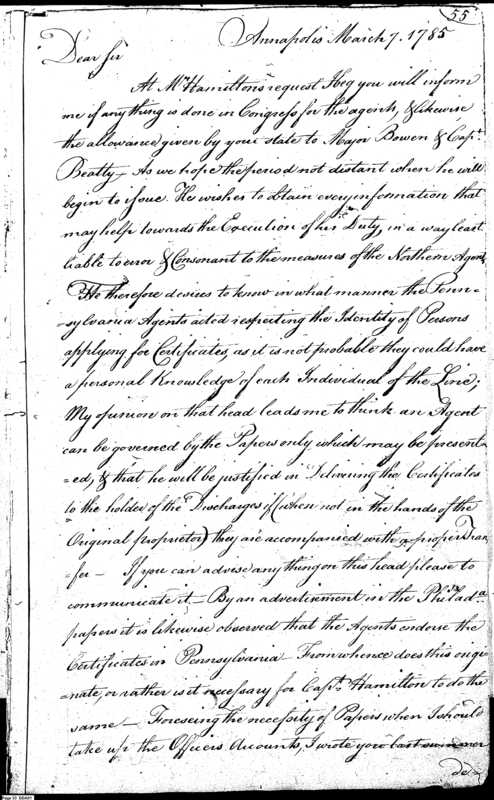 55
Annapolis March 7. 1785
Dear Sir
At Mr Hamiltons request I beg you will inform
me if any thing is done in Congress for the agents, & likewise
the allowance given by your state to Major Bowen & Capt.
Beatty - As we hope the period not distant when he will
begin to issue. He wishes to obtain every information that
may help towards the Execution of his Duty, in a way least
liable to error & Consonant to the measures of the Northern Agents
He therefore desires to know in what manner the Penn-
=sylvania Agents acted respecting the Identity of Persons
applying for Certificates, as it is not probable they could have
a personal Knowledge of each Individual of the Line;
My opinion on that head leads me to think an Agent
can be governed by the Papers only which may be present-
=ed, & that he will be justified in Delivering the Certificates
to the holder of the Discharges if (when not in the hands of the
Original proprietor) they are accompanied with a proper Tran
=fer - If you can advise any thing on this head please to
communicate it - By an advertisement in the Philada
papers it is likewise observed that the Agents endorse the
Certificates in Pennsylvania - From whence does this origi
=nate, or rather is it necessary for Capt. Hamilton to do the
same - Foreseeing the necessity of Papers when I should
take up the Officers Accounts, I wrote you last summer
Page 93 DDASI